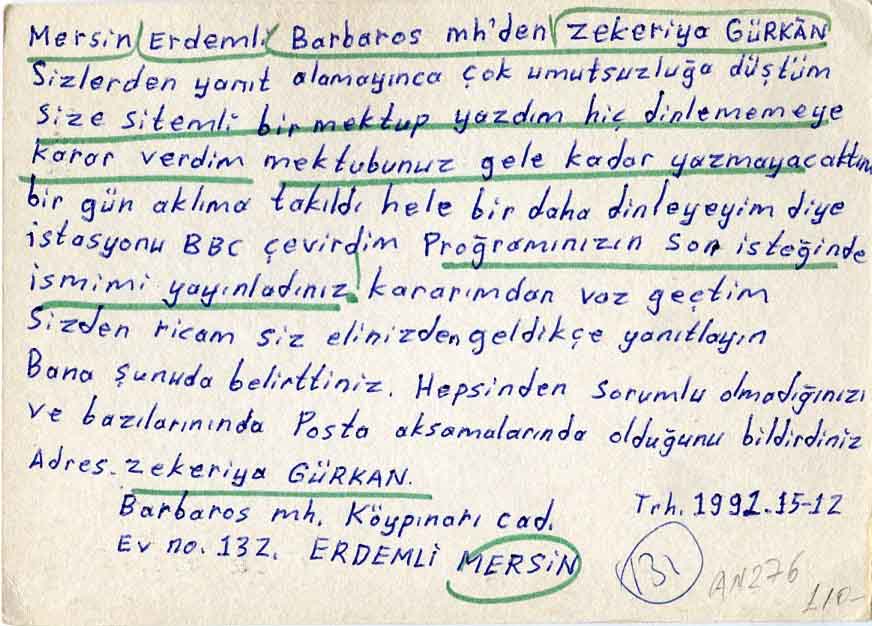 Mersin Erdemli Barbaros mh'den Zekeriya GÜRKAN
Sizlerden yanıt alamayınca çok umutsuzluğa düştüm
Size sitemli bir mektup yazdım hiç dinlememeye
karar verdim mektubunuz gele kadar yazmayacaktım
bir gün aklıma takıldı hele bir daha dinleyeyim diye
istasyonu BBC çevirdim Proğramınızın son isteğinde
ismimi yayınladınız kararımdan vaz geçtim
Sizden ricam siz elinizden geldikçe yanıtlayın
Bana şunuda belirttiniz. Hepsinden sorumlu olmadığınızı
ve bazılarınında Posta aksamalarında olduğunu bildirdiniz
Adres-Zekeriya GÜRKAN.
Barbaros mh. Köypınarı cad. Trh. 1992-15-12
Ev no. 132. ERDEMLİ MERSİN
131 AN276
£10-